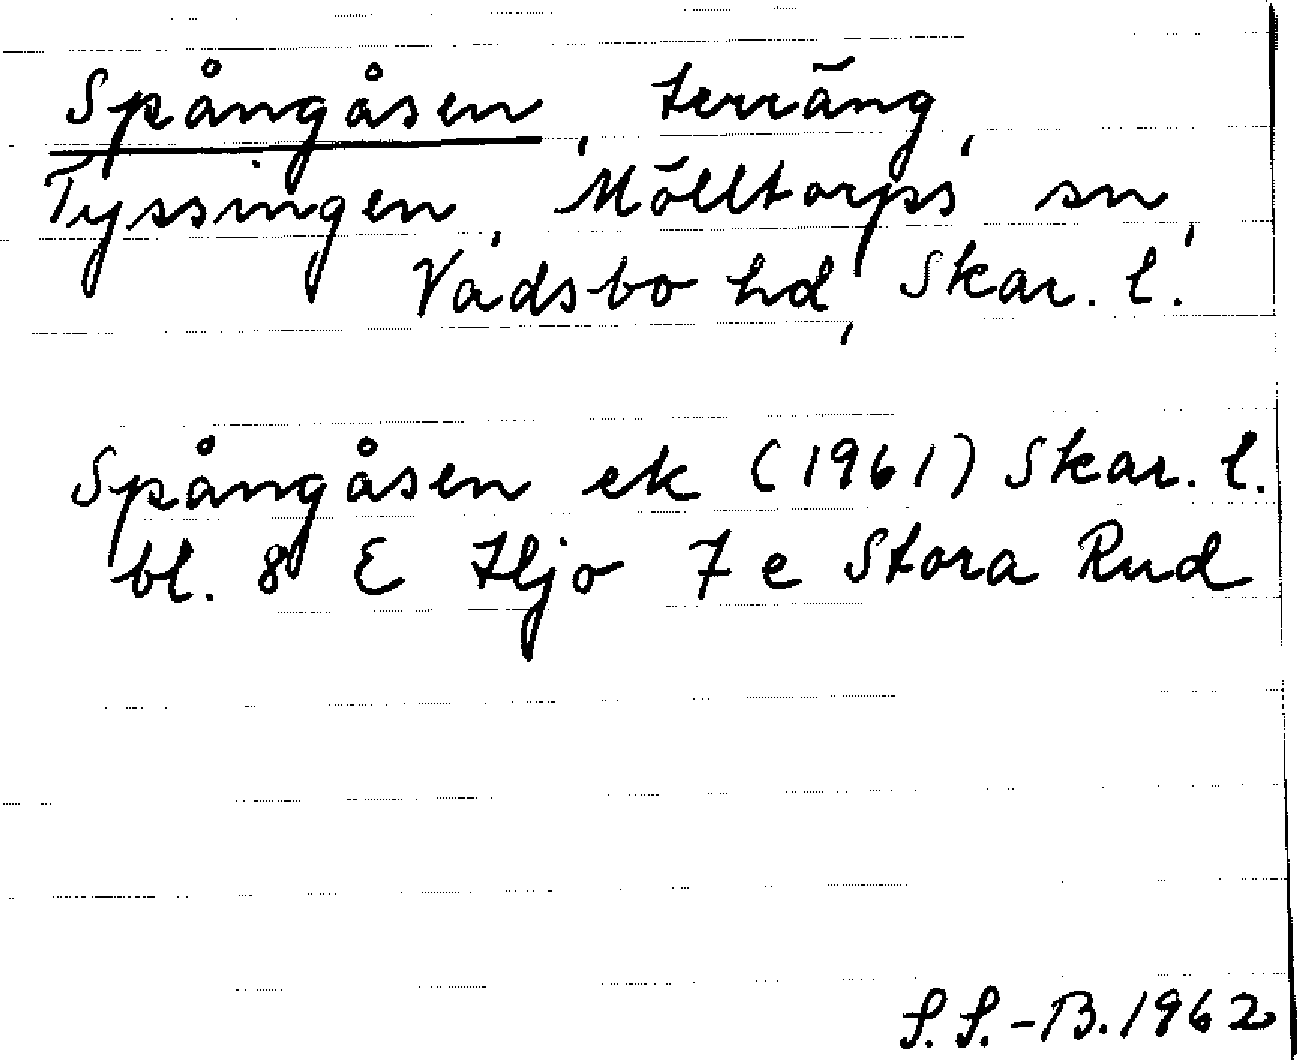 Spångåsen, terräng,
Tyssingen, Mölltorps sn,
Vadsbo hd, Skar. l.
Spångåsen ek (1961) Skar. l.
bl. 8 E Hjo 7 e Stora Rud
S. S.-B. 1962